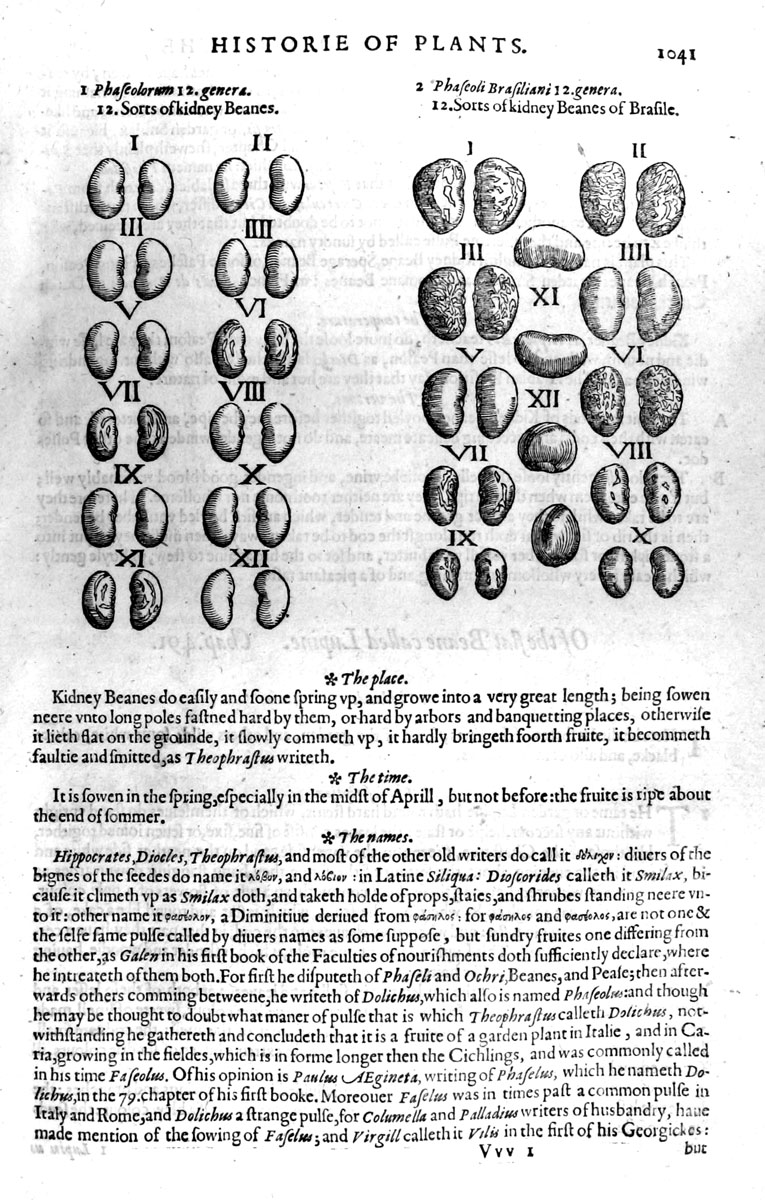 HISTORIE OF PLANTS.
1041
1 Phaſeolorum 12.genera.
12.Sorts of kidney Beanes.
2 Phaſeoli Braſiliani 12.genera.
12.Sorts of kidney Beanes of Braſile.
I II
III IIII
V VI
VII VIII
IX X
XI XII
I II
III IIII
XI
V VI
XII
VII VIII
IX X
✻ The place.
Kidney Beanes do eaſily and ſoone ſpring vp, and growe into a very great length; being ſowen
neere vnto long poles faſtned hard by them, or hard by arbors and banquetting places, otherwiſe
it lieth flat on the grounde, it ſlowly commeth vp, it hardly bringeth foorth fruite, it becommeth
faultie and ſmitted, as Theophraſtus writeth.
✻ The time.
It is ſowen in the ſpring, eſpecially in the midſt of Aprill, but not before: the fruite is ripe about
the end of ſommer.
✻ The names.
Hippocrates, Diocles, Theophraſtus, and moſt of the other old writers do call it δόλιχον: diuers of the
bignes of the ſeedes do name it λόβον, and λόβιον: in Latine Siliqua: Dioſcorides calleth it Smilax, bi-
cauſe it climeth vp as Smilax doth, and taketh holde of props, ſtaies, and ſhrubes ſtanding neere vn-
to it: other name it φασίολον, a Diminitiue deriued from φάσηλος: for φάσηλος and φασίολος, are not one &
the ſelfe ſame pulſe called by diuers names as ſome ſuppoſe, but ſundry fruites one differing from
the other, as Galen in his firſt book of the Faculties of nouriſhments doth ſufficiently declare, where
he intreateth of them both. For firſt he diſputeth of Phaſeli and Ochri, Beanes, and Peaſe; then after-
wards others comming betweene, he writeth of Dolichus, which alſo is named Phaſeolus: and though
he may be thought to doubt what maner of pulſe that is which Theophraſtus calleth Dolichus, not-
withſtanding he gathereth and concludeth that it is a fruite of a garden plant in Italie, and in Ca-
ria, growing in the fieldes, which is in forme longer then the Cichlings, and was commonly called
in his time Faſeolus. Of his opinion is Paulus AEgineta, writing of Phaſelus, which he nameth Do-
lichus, in the 79. chapter of his firſt booke. Moreouer Faſelus was in times paſt a common pulſe in
Italy and Rome, and Dolichus a ſtrange pulſe, for Columella and Palladius writers of husbandry, haue
made mention of the ſowing of Faſelus; and Virgill calleth it Vilis in the firſt of his Georgickes:
Vvv 1
but